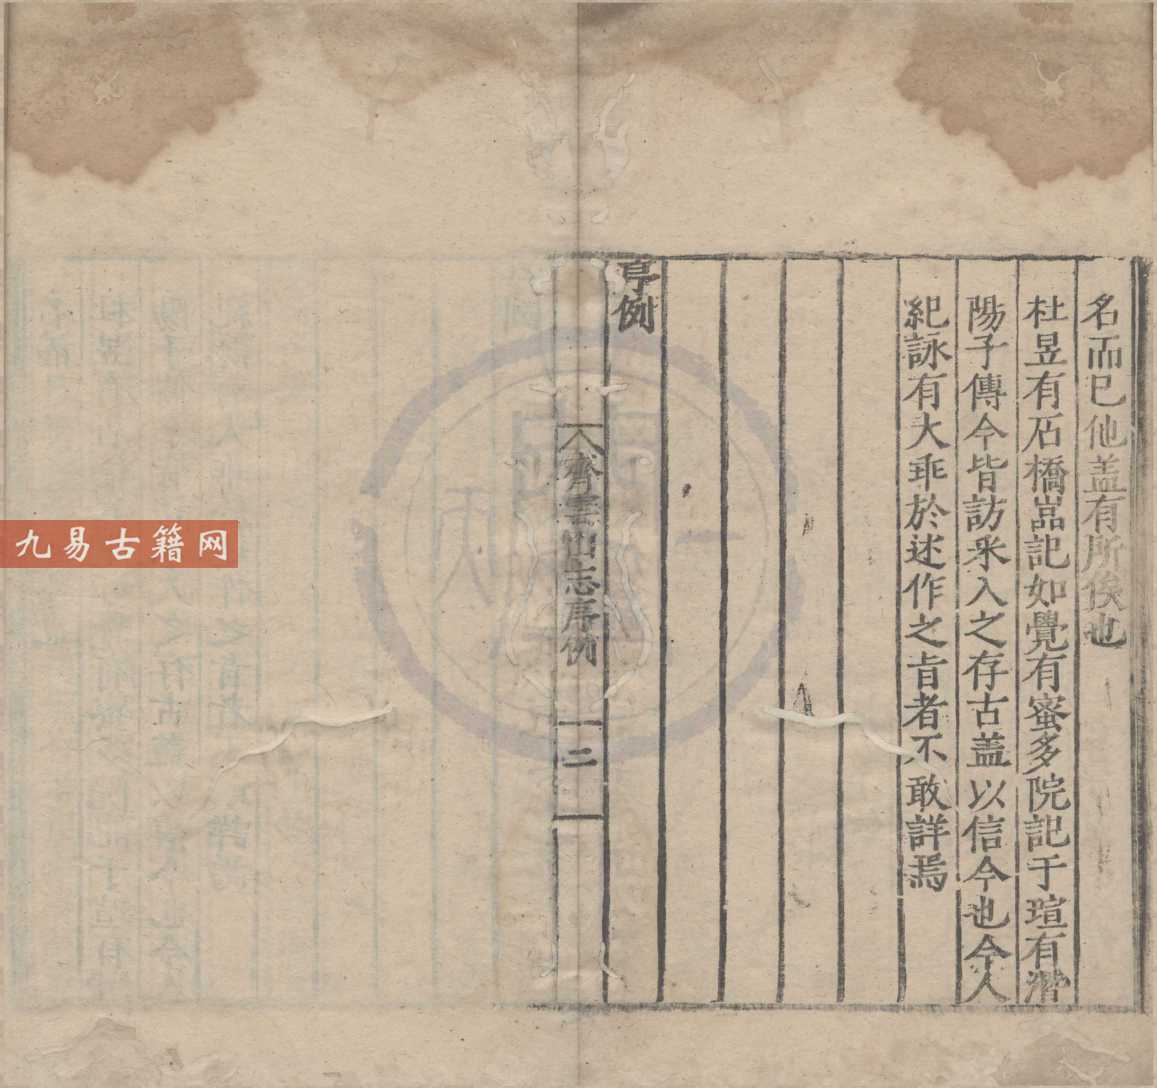 名而已他盖有所俟也
杜昱有石橋嵓記如覺有蜜多院記于瑄有潛
陽子傳今皆訪采入之存古盖以信今也今人
紀詠有大乖於述作之旨者不敢詳焉
序例
齊雲山志序例
二
九易古籍网